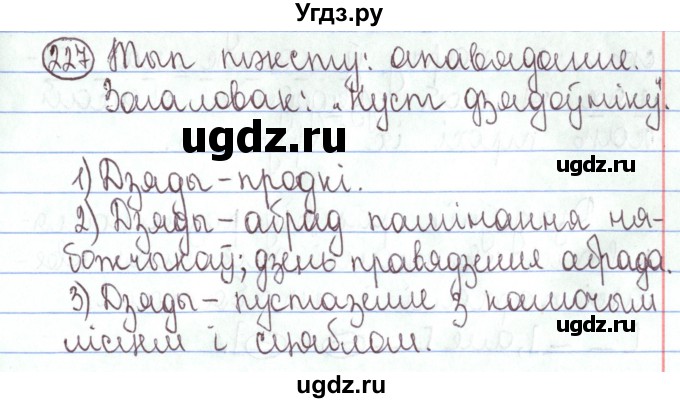 Угдз.ру
227 Тып тэксту: апавяданне.
Загаловак: „Куст дзядоўніку".
ugdz.ru ugdz.ru
1) Дзяды – продкі.
2) Дзяды – абрад памінання ня-
божчыкаў; дзень правядзення абрада.
ugdz.ru
3) Дзяды – пустазелле з калючым
лісцем і сцяблом.
ugdz.ru
ugdz.ru